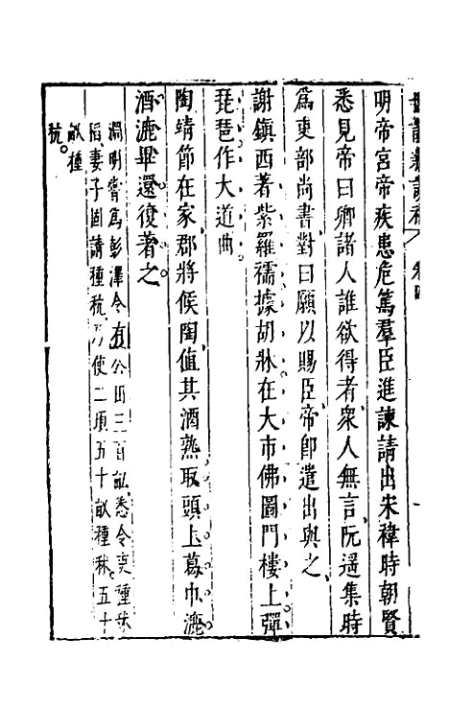 明帝宮帝疾患危篤羣臣進諫請出宋褘時朝賢
悉見帝曰卿諸人誰欲得者衆人無言阮遥集時
爲吏部尚書對曰願以賜臣帝卽遣出與之
謝鎮西著紫羅襦據胡牀在大市佛圖門樓上彈
琵琶作大道曲
陶靖節在家郡將候陶値其酒熟取頭上葛巾漉
酒漉畢還復著之
淵明嘗爲彭澤令有公田三百畝悉令吏種秫
稻妻子固請種秔乃使二頃五十畝種秫五十
畝種
秔